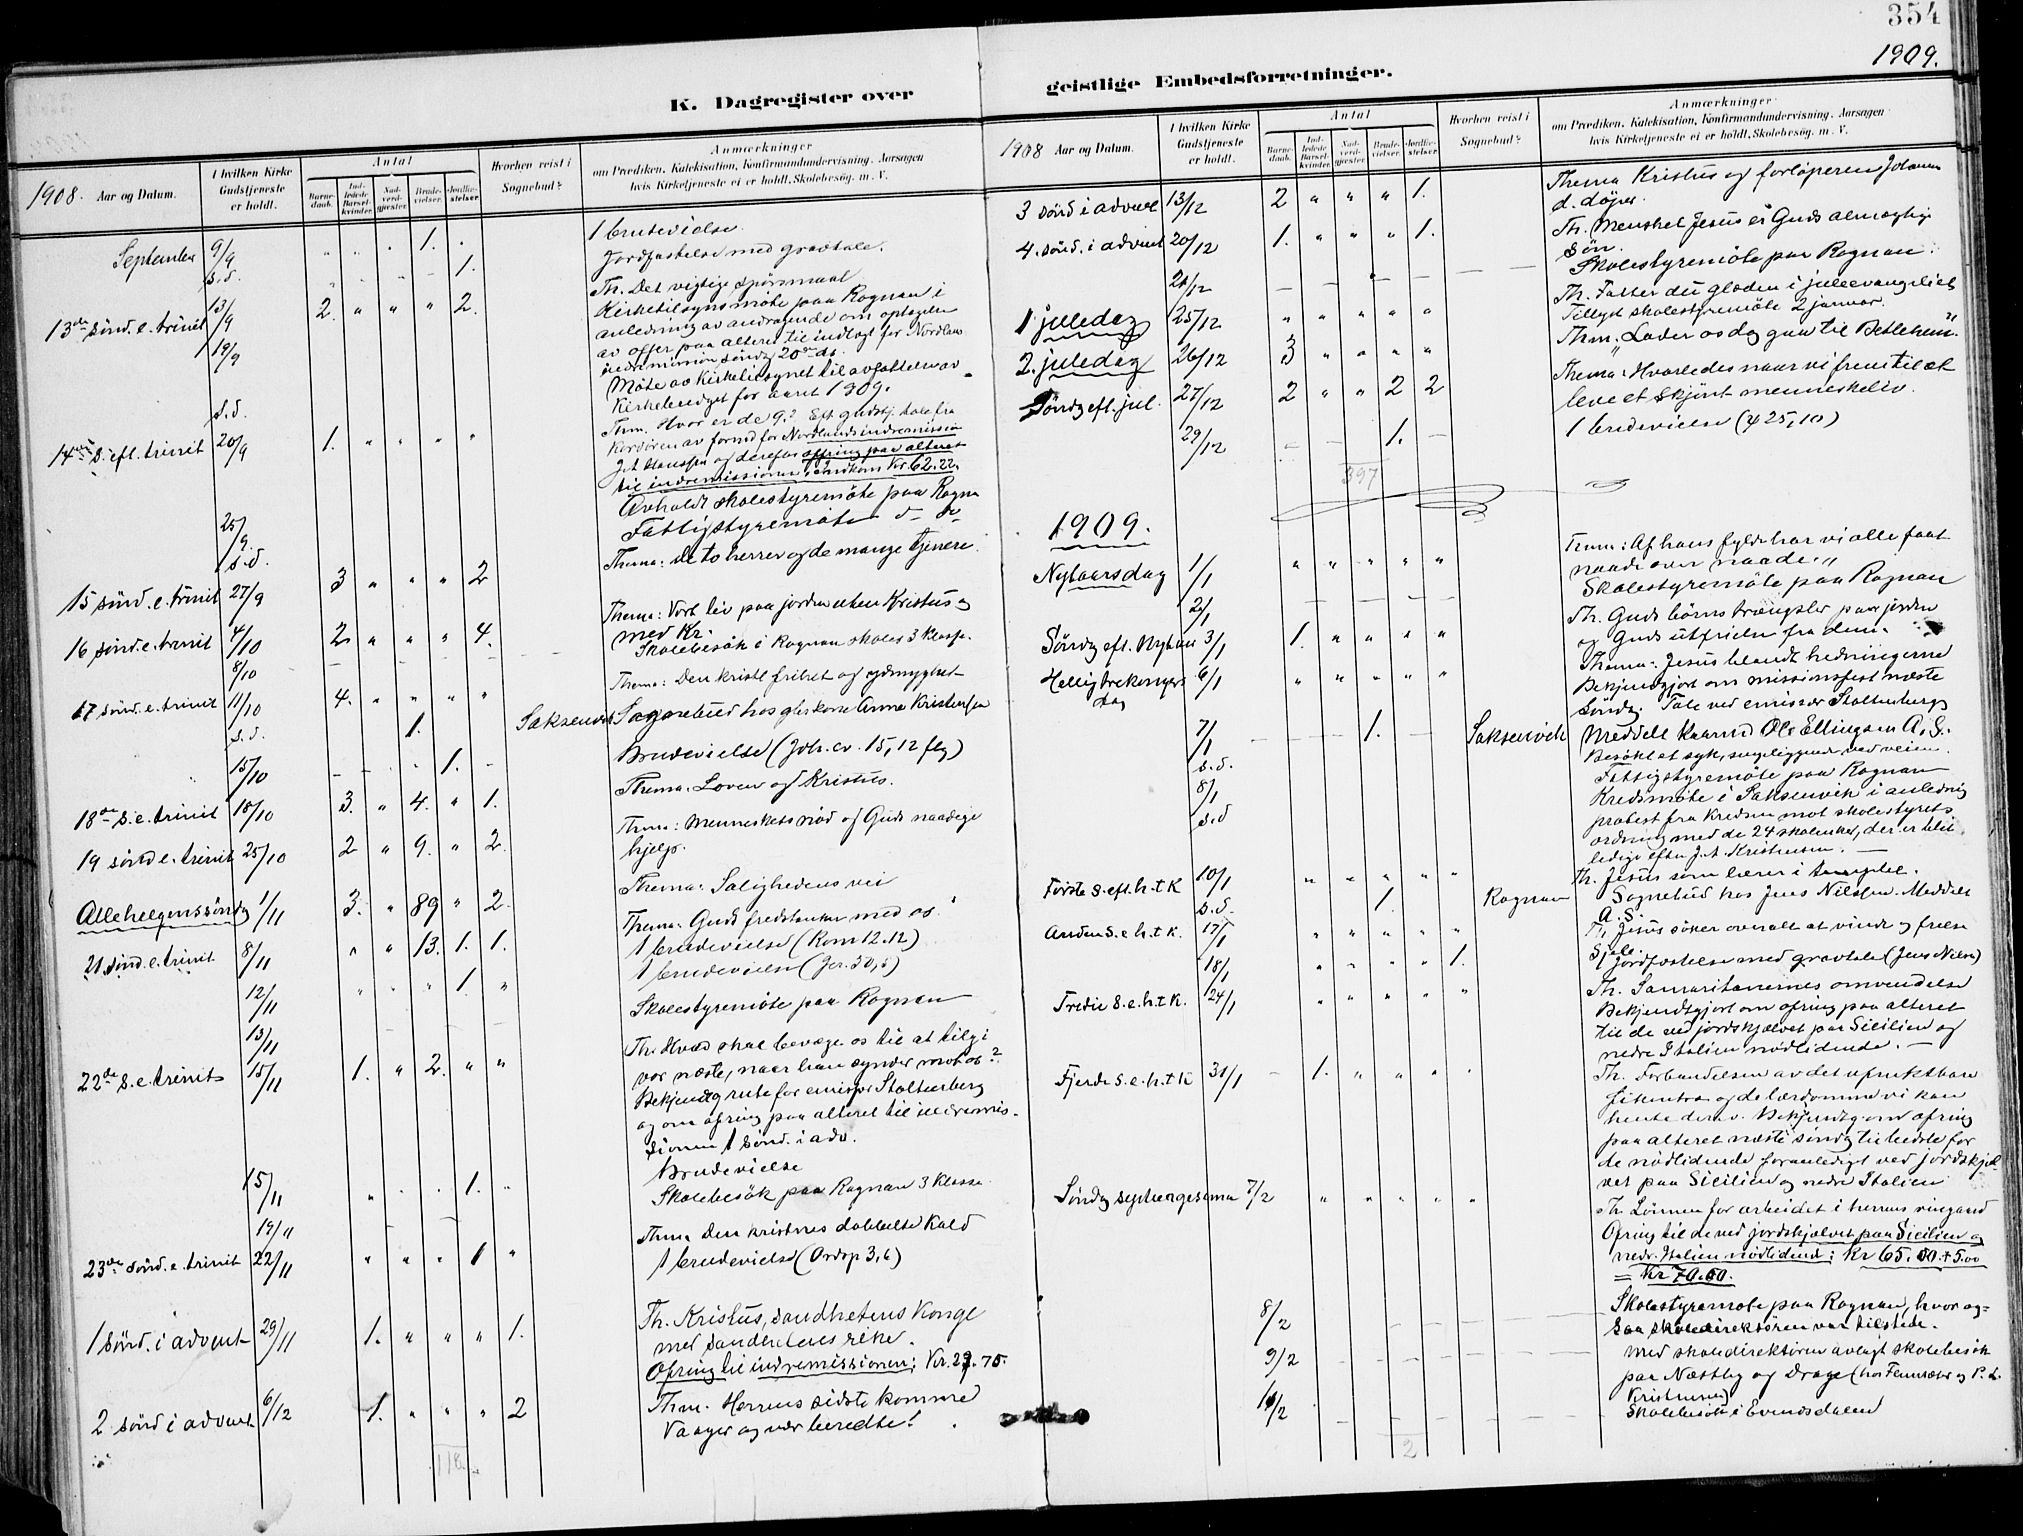 354
1909.
K. Dagregister over
geistlige Embedsforretninger.
1908. Aar og Datum.
I hvilken Kirke Gudstjeneste er holdt.
Antal
Barnedaab.
Indledede Barselkvinder.
Nadverdgjester.
Brudevielser.
Jordfæstelser.
Hvorhen reist i Sognebud?
Anmærkninger
om Prædiken, Katekisation, Konfirmandundervisning. Aarsagen
hvis Kirketjeneste ei er holdt, Skolebesøg. m. V.
September 9/9 " " . 1. . 1 brudevielse.
s.d. 1. Jordfæstelse med gravtale.
13de sönd. e. trinit 13/9 2. " " " 2. Th. Det vigtige spörsmaal
19/9 Kirketilsynsmöte paa Rognan i
anledning av andragende om optagelse
av offer paa alteret til indtægt for Nordlands
indremission söndag 20de ds.
s.d. Möte av Kirketilsynet til avfattelse av
Kirkebudget for aaret 1909.
14de s. eft. trinit 20/9 1. " " " " Thm. Hvor er de 9? Eft. gudstj. tale fra
kordören av formd for Nordlands indremission
J. A. Hanssen og derefter ofring paa alteret
til indremissionen, indkom Kr 62.22.
25/9 Avholdt skolestyremöte paa Rognan
s.d. Fattigstyremöte d- do
15 sönd. e. trinit 27/9 3 " " " 2 Thema: De to herrer og de mange tjenere.
16 sönd. e. trinit 4/10 2 " " " 4. Thema: Vort liv paa jorden uten Kristus og
med Kr.
8/10 Skolebesök i Rognan skoles 3 klasse.
17 sönd. e. trinit 11/10 4. " " " " Thema: Den kristl frihet og ydmyghet
s.d. 1. Saksenvik Sognebud hos gbskone Anna Kristensen
15/10 1. Brudevielse (Joh. ev. 15,12 flg)
18de s. e. trinit 18/10 3. " 4. " 1. Thema: Loven og Kristus.
19 sönd e. trinit 25/10 2 " 9. " 2. Thema: Menneskets nöd og Guds naadige
hjelp.
Allehelgenssöndag 1/11 3. " 89 " 2. Thema: Salighedens vei
21 sönd. e. trinit 8/11 " " 13. 1. 1. Thema: Guds fredstanker med os.
1 brudevielse (Rom 12.12)
12/11 " " " 1. " 1 brudevielse (Jer. 30,5)
13/11 Skolestyremöte paa Rognan
22de s. e. trinit 15/11 1. " 2. " " Th. Hvad skal bevæge os til at tilgi
vor næste, naar han synder mot os?
Bekjendtg rute for emissær Stoltenberg
og om ofring paa alteret til indremis-
sionen 1 sönd. i adv.
15/11 1. Brudevielse
19/11 Skolebesök paa Rognan 3 klasse
23de sönd. e. trinit 22/11 " " " 1 " Thema Den kristnes dobbelte kald
1 brudevielse (Ordsp 3,6)
1 sönd. i advent 29/11 1. " " " 1. Th. Kristus, sandhetens konge
med sandhetens rike.
Ofring til indremissionen: Kr. 29.75.
2 sönd i advent 6/12 1. " " " 2 Thm. Herrens sidste komme
Vaager og vær beredte!
118.
1908 Aar og Datum.
I hvilken Kirke Gudstjeneste er holdt.
Antal
Barnedaab.
Indledede Barselkvinder.
Nadverdgjester.
Brudevielser.
Jordfæstelser.
Hvorhen reist i Sognebud?
Anmærkninger
om Prædiken, Katekisation, Konfirmandundervisning. Aarsagen
hvis Kirketjeneste ei er holdt, Skolebesög. m. V.
3 sönd i advent 13/12 2 " " " 1. Thema Kristus og forlöperen Johannes
d. döper.
4. sönd. i advent 20/12 1. " " " 1. Th. Mensket Jesus er Guds almægtige
Sön.
21/12 Skolestyremöte paa Rognan.
1 juledag 25/12 " " " " " Th. Fatter du glæden i juleevangeliet
Tillyst skolestyremöte 2 januar.
2. juledag 26/12 3 " " " " Thm: "Lader os dog gaa til Betlehem".
Söndg eft. jul. 27/12 2 " " 2 2 Thema: Hvorledes naar vi frem til at
leve et skjönt menneskeliv.
29/12 1. 1 brudevielse (ψ 25,10)
397
1909.
Nytaarsdag 1/1 " " " " " Thema: Af hans fylde har vi alle faat
naade over naade."
2/1 Skolestyremöte paa Rognan
Söndg eft. Nytaar 3/1 1. " " " " Th. Guds börns trængsler paa jorden
og Guds utfrielse fra dem.
Helligtrekongers dag 6/1 " " " " " Thema: Jesus blandt hedningerne
Bekjendtgjort om missionsfest næste
Söndg. Tale ved emissær Stoltenberg
7/1 1. Saksenvik Meddelt kaarmd Ole Ellingsen A. S.
s.d. Besökt et sykt, sengeliggende ved veien.
8/1 Fattigstyremöte paa Rognan
s.d Kredsmöte i Saksenvik i anledning
protest fra kredsen mot skolestyrets
ordning med de 24 skoleuker, der er blit
ledige efter J. A. Kristensen.
Förste s. eft. h.t.k 10/1 " " " " " Th. Jesus som lærer i templet.
s.d. 1. Rognan Sognebud hos Jens Nilsen. Meddelt
A. S.
Anden s. e. h. t. k. 17/1 " " " " " Th. Jesus söker overalt at vinde og frelse
Sjæle.
18/1 " " " " 1. Jordfæstelse med gravtale (Jens Nilsen)
Tredie s. e. h. t K. 24/1 " " " " " Th. Samaritanernes omvendelse
Bekjendtgjort om ofring paa alteret
til de ved jordskjælvet paa Sicilien og
nedre Italien nödlidende.
Fjerde s. e. h. t K 31/1 1. " " " " Th. Forbandelsen av det ufruktbare
fikentræ og de lærdomme vi kan
hente derav. Bekjendtg om ofring
paa alteret næste söndg til bedste for
de nödlidende foranlediget ved jordskjæl-
vet paa Sicilien og nedre Italien
Söndg septuagesima 7/2 " " " " " Th Lönnen for arbeidet i herrens vingaard
Ofring til de ved jordskjælvet paa Sicilien og
nedr. Italien nödlidende: Kr 65.00 + 5.00
= Kr 70.00.
8/2 Skolestyremöte paa Rognan, hvor og-
saa skoledirektören var tilstede.
9/2 Med skoledirektören avlagt skolebesök
paa Næstby og Drage (hos Flemsæter og P. L.
Kristensen)
10/2 Skolebesök i Evensdalen
2